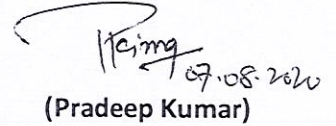 07.08.2020
(Pradeep Kumar)